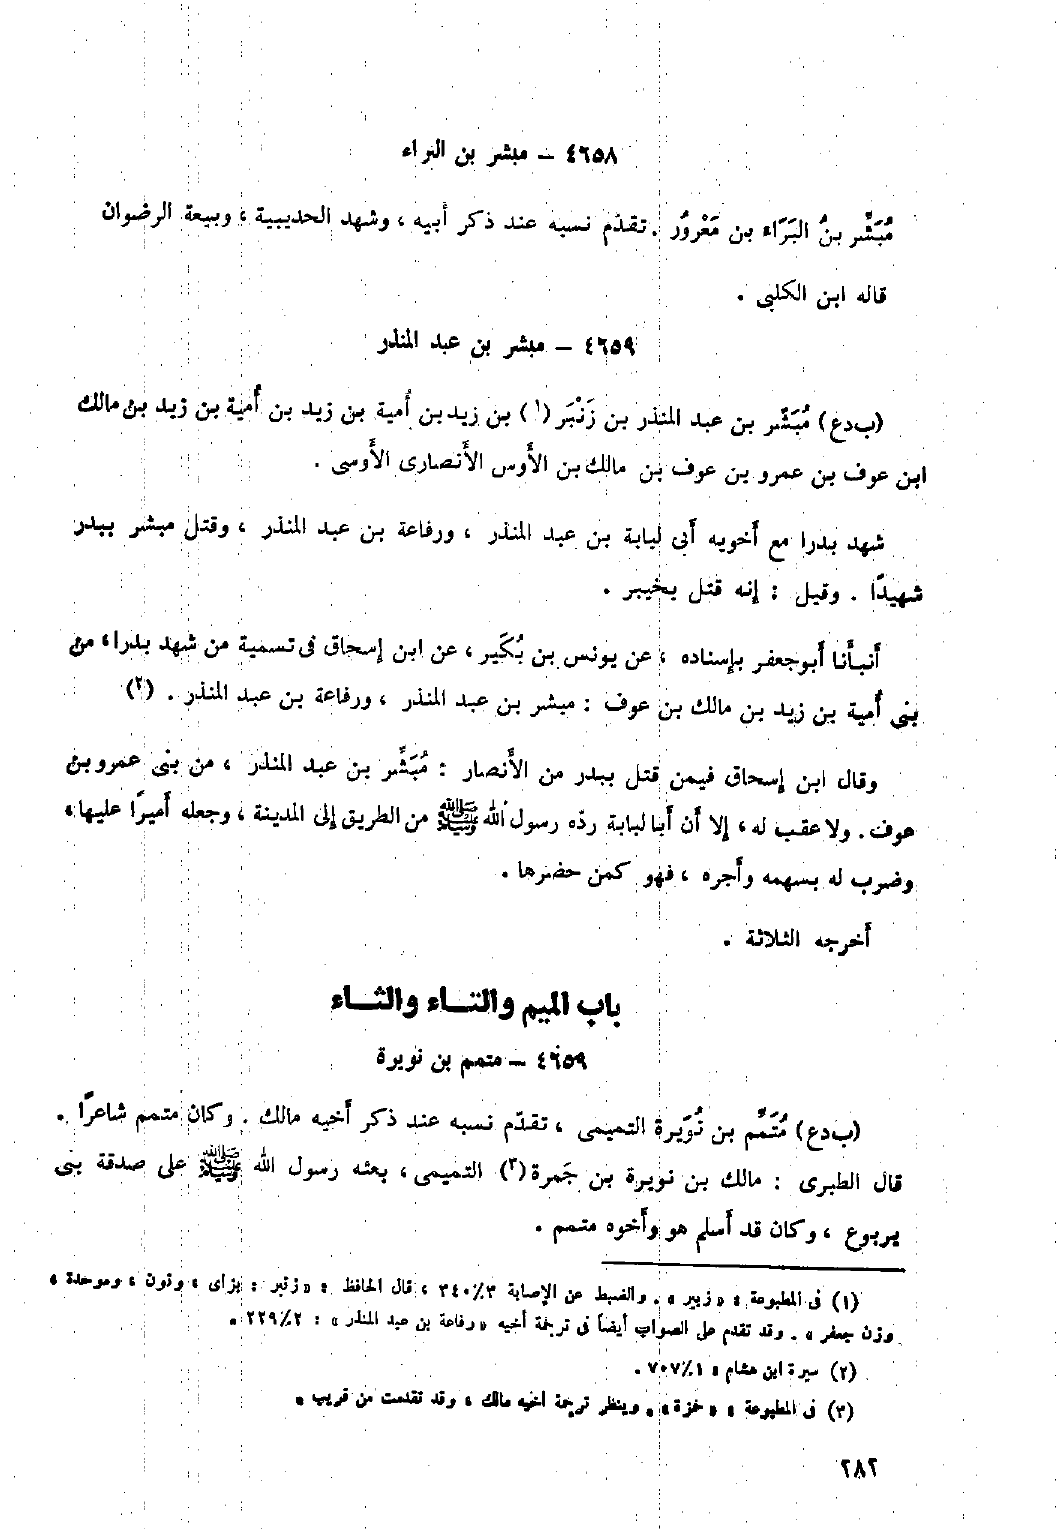 ٤٦٥٨ – مبشر بن البراء
مُبَشِّر بنُ البَرَاء بن مَعْرُور . تقدّم نسبه عند ذكر أبيه ، وشهد الحديبية ، وبيعة الرضوان
قاله ابن الكلبى .
٤٦٥٩ – مبشر بن عبد المنذر
(ب د ع) مُبَشِّر بن عبد المنذر بن زَنْبَر (١) بن زيد بن أُمية بن زيد بن أُمية بن زيد بن مالك
ابن عوف بن عمرو بن عوف بن مالك بن الأَوس الأَنصارى الأَوسى .
شهد بدرا مع أَخويه أَبى لبابة بن عبد المنذر ، ورفاعة بن عبد المنذر ، وقتل مبشر ببدر
شهيدًا . وقيل : إنه قتل بخيبر .
أَنبأَنا أَبو جعفر بإسناده ، عن يونس بن بُكَير ، عن ابن إسحاق فى تسمية من شهد بدرا ، من
بنى أُمية بن زيد بن مالك بن عوف : مبشر بن عبد المنذر ، ورفاعة بن عبد المنذر . (٢)
وقال ابن إسحاق فيمن قتل ببدر من الأَنصار : مُبَشِّر بن عبد المنذر ، من بنى عمرو بن
عوف . ولا عقب له ، إلا أَن أَبا لبابة ردّه رسول الله ﷺ من الطريق إلى المدينة ، وجعله أَميرًا عليها ،
وضرب له بسهمه وأَجره ، فهو كمن حضرها .
أَخرجه الثلاثة .
باب الميم والتــاء والثــاء
٤٦٥٩ – متمم بن نويرة
(ب د ع) مُتَمِّم بن نُوَيرة التميمى ، تقدّم نسبه عند ذكر أَخيه مالك . وكان متمم شاعرًا .
قال الطبرى : مالك بن نويرة بن جَمرة (٣) التميمى ، بعثه رسول الله ﷺ على صدقة بنى
يربوع ، وكان قد أَسلم هو وأَخوه متمم .
(١) فى المطبوعة : « زبير » . والضبط عن الإصابة ٣٤٠/٣ ، قال الحافظ : « زنبر : بزاى ، ونون ، وموحدة ،
وزن جعفر » . وقد تقدم على الصواب أيضاً فى ترجمة أخيه « رفاعة بن عبد المنذر » : ٢٢٩/٢ .
(٢) سيرة ابن هشام : ٧٠٧/١ .
(٣) فى المطبوعة : « حمزة » . وينظر ترجمة أخيه مالك ، وقد تقدمت من قريب .
٢٨٢